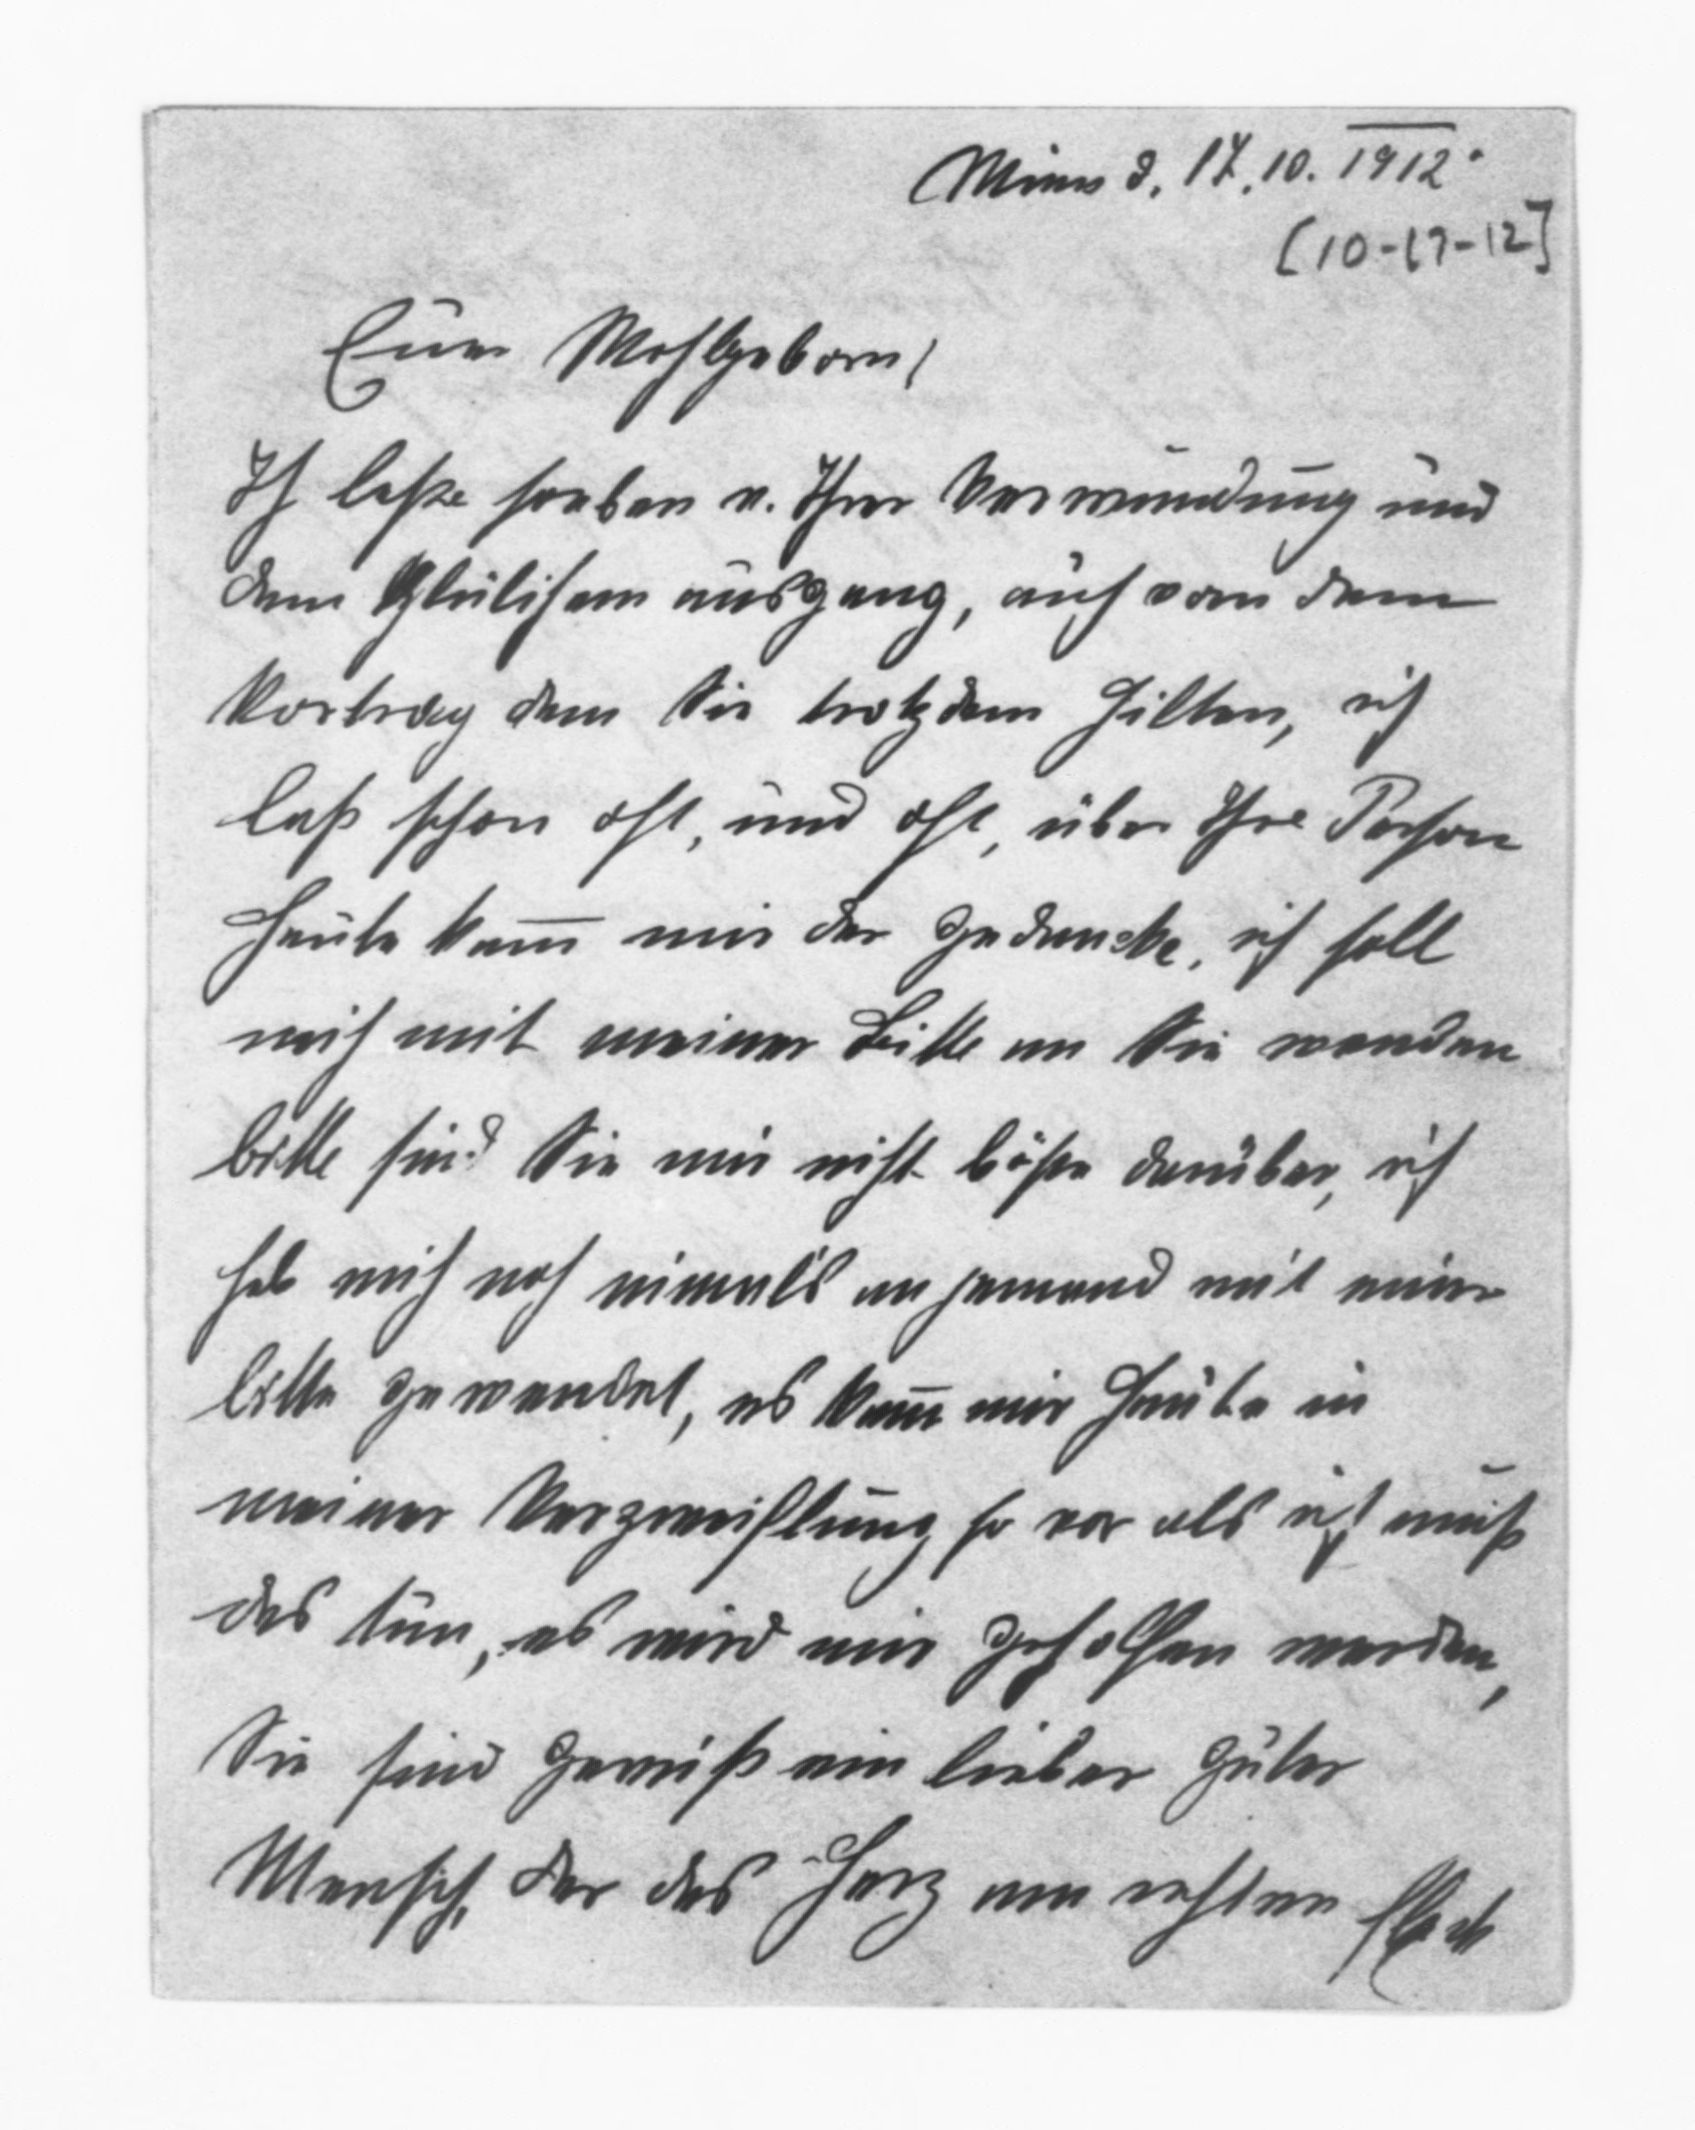 Wien d. 17.10. 1912.
[10-17-12]
Euer Wohlgeborn!
Ich leße soeben v. Ihrer Verwundung und
dem Glülichem ausgang, auch von dem
Vortrag dem Sie trotzdem Hilten, ich
laß schon oft, und oft, über Ihre Person
Heute kam̅ mir der gedancke, ich soll
mich mit meiner Bitte an Sie wenden
bitte sind Sie mir nicht böße darüber, ich
hab mich noch nimals an jemand mit einer
bitte gewendet, es kam̅ mir Heute in
meiner Verzweiflung so vor als ich muß
das tun, es wird mir geholfen werden,
Sie sind gewiß ein lieber guter
Mensch, der das Herz am rechten fleck